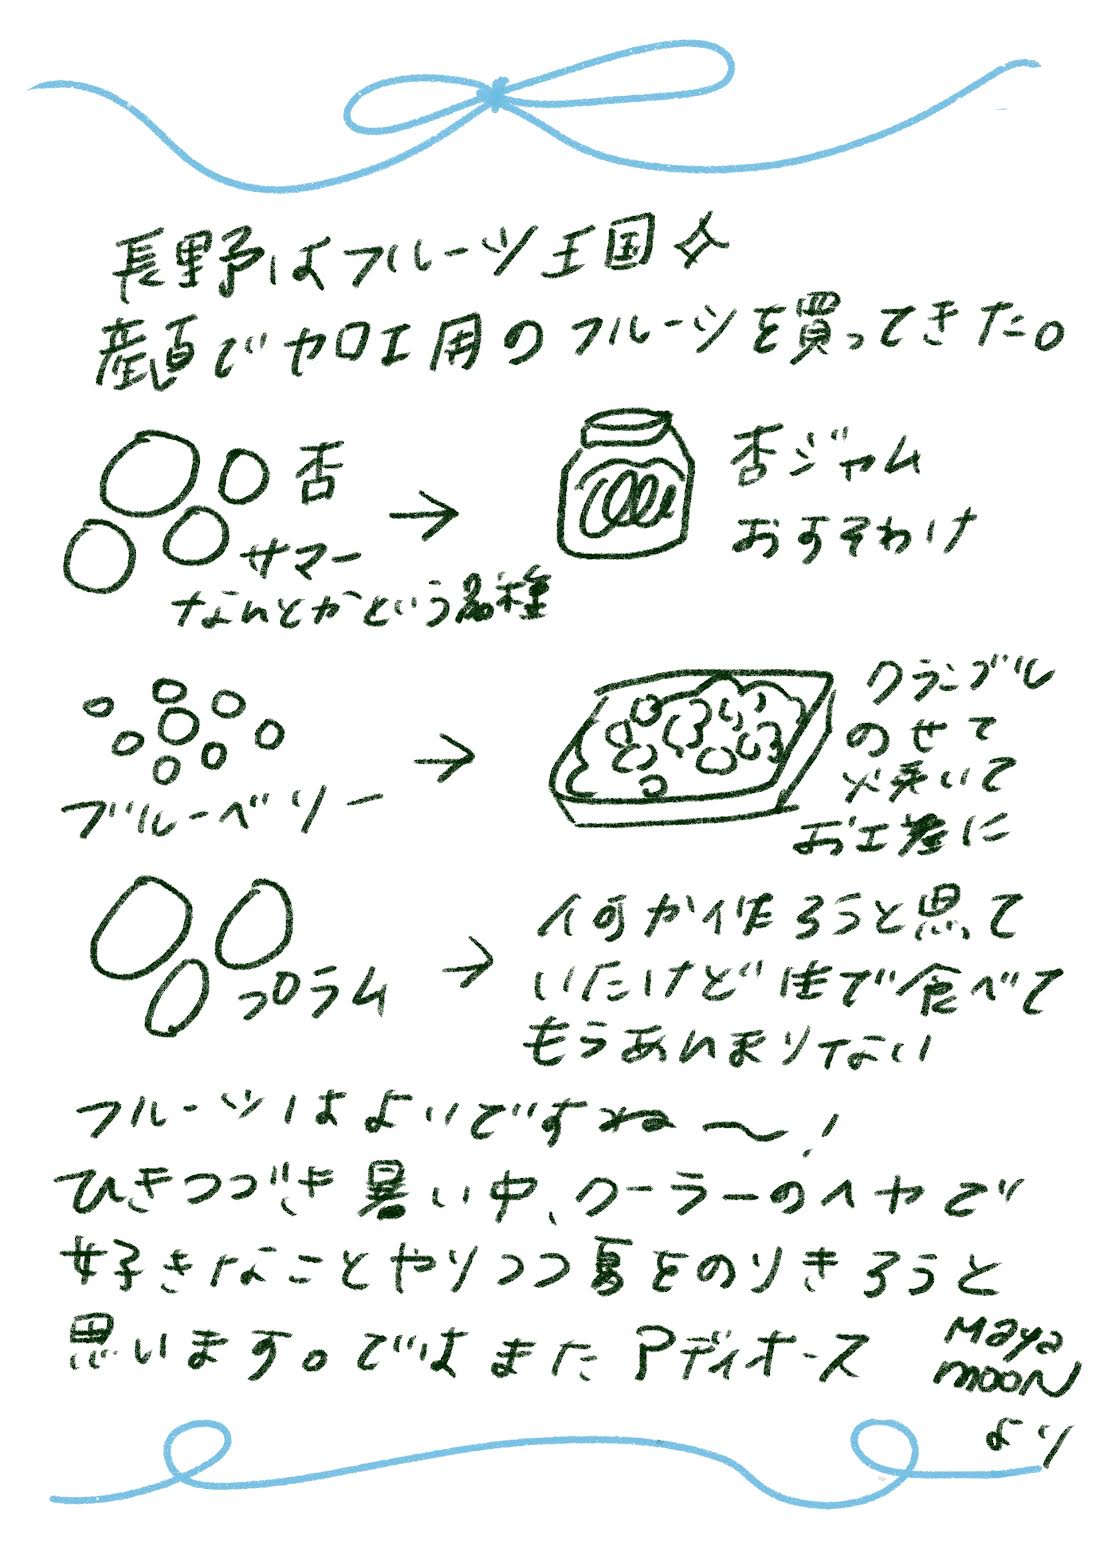 長野はフルーツ王国
産直で加工用のフルーツを買ってきた。
杏
サマー
なんとかという品種
杏ジャム
おすそわけ
ブルーベリー
クランブル
のせて
焼いて
お土産に
プラム
何か作ろうと思て
いたけど生で食べて
もうあんまりない
フルーツはよいですね〜!
ひきつづき暑い中、クーラーのヘヤで
好きなことやりつつ夏をのりきろうと
思います。ではまた アディオース
Maya
mooN
より